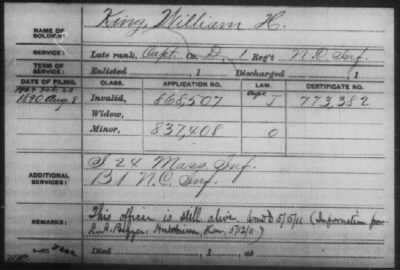 NAME OF SOLDIER: King, William H.
SERVICE: Late rank, Capt. Co. D, 1 Reg't N.C. Inf.
TERM OF SERVICE: Enlisted , 1 Discharged , 1
DATE OF FILING. CLASS. APPLICATION NO. LAW. CERTIFICATE NO.
1890 Aug. 8 Invalid, 868,507 J 773,382
Widow,
Minor, 837,408 0
ADDITIONAL SERVICES: S 24 Mass Inf.
B 1 N.C. Inf.
REMARKS: This officer is still alive, 5/15/11 (Information from
Bigger, Hutchinson, Kan, 5/12/11)
Died , 1 , at